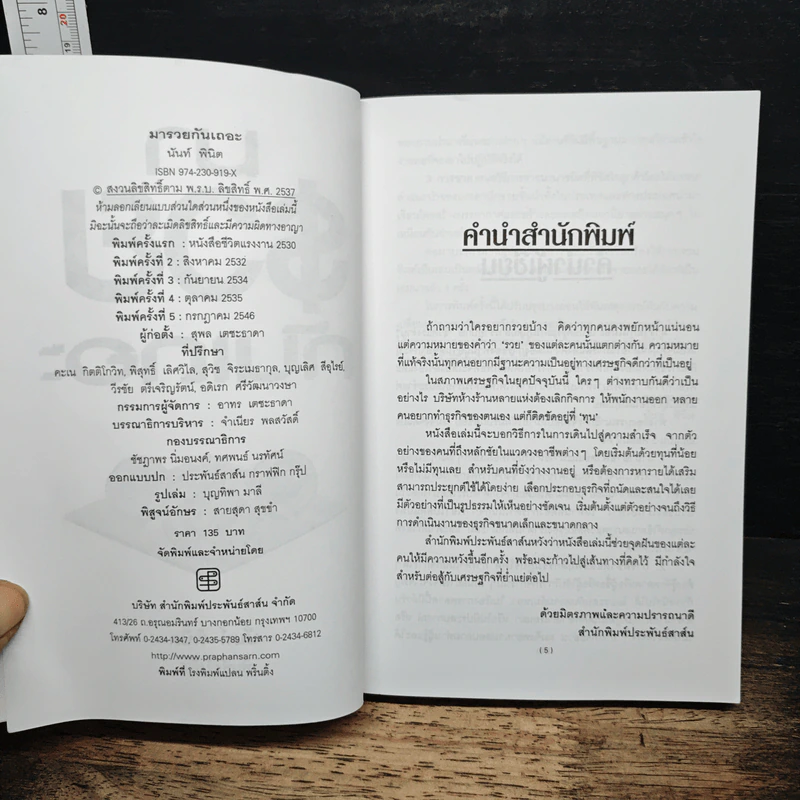 8
20
19
มารวยกันเถอะ
นันท์ พินิต
ISBN 974-230-919-X
© สงวนลิขสิทธิ์ตาม พ.ร.บ. ลิขสิทธิ์ พ.ศ. 2537
ห้ามลอกเลียนแบบส่วนใดส่วนหนึ่งของหนังสือเล่มนี้
มิฉะนั้นจะถือว่าละเมิดลิขสิทธิ์และมีความผิดทางอาญา
พิมพ์ครั้งแรก : หนังสือชีวิตแรงงาน 2530
พิมพ์ครั้งที่ 2 : สิงหาคม 2532
พิมพ์ครั้งที่ 3 : กันยายน 2534
พิมพ์ครั้งที่ 4 : ตุลาคม 2535
พิมพ์ครั้งที่ 5 : กรกฎาคม 2546
ผู้ก่อตั้ง : สุพล เตชะธาดา
ที่ปรึกษา
คะเน กิตติโกวิท, พิสุทธิ์ เลิศวิไล, สุวิช จิระเมธากุล, บุญเลิศ สีอุไรย์,
วีรชัย ตรีเจริญรัตน์, อดิเรก ศรีวัฒนาวงษา
กรรมการผู้จัดการ : อาทร เตชะธาดา
บรรณาธิการบริหาร : จำเนียร พลสวัสดิ์
กองบรรณาธิการ
ชัชฎาพร นิ่มอนงค์, ทศพนธ์ นรทัศน์
ออกแบบปก : ประพันธ์สาส์น กราฟฟิก กรุ๊ป
รูปเล่ม : บุญทิพา มาลี
พิสูจน์อักษร : สายสุดา สุขขำ
ราคา 135 บาท
จัดพิมพ์และจำหน่ายโดย
บริษัท สำนักพิมพ์ประพันธ์สาส์น จำกัด
413/26 ถ.อรุณอมรินทร์ บางกอกน้อย กรุงเทพฯ 10700
โทรศัพท์ 0-2434-1347, 0-2435-5789 โทรสาร 0-2434-6812
http://www.praphansarn.com
พิมพ์ที่ โรงพิมพ์แปลน พริ้นติ้ง
คำนำสำนักพิมพ์
ถ้าถามว่าใครอยากรวยบ้าง คิดว่าทุกคนคงพยักหน้าแน่นอน
แต่ความหมายของคำว่า 'รวย' ของแต่ละคนนั้นแตกต่างกัน ความหมาย
ที่แท้จริงนั้นทุกคนอยากมีฐานะความเป็นอยู่ทางเศรษฐกิจดีกว่าที่เป็นอยู่
ในสภาพเศรษฐกิจในยุคปัจจุบันนี้ ใครๆ ต่างทราบกันดีว่าเป็น
อย่างไร บริษัทห้างร้านหลายแห่งต้องเลิกกิจการ ให้พนักงานออก หลาย
คนอยากทำธุรกิจของตนเอง แต่ก็ติดขัดอยู่ที่ 'ทุน'
หนังสือเล่มนี้จะบอกวิธีการในการเดินไปสู่ความสำเร็จ จากตัว
อย่างของคนที่ถึงหลักชัยในแวดวงอาชีพต่างๆ โดยเริ่มต้นด้วยทุนที่น้อย
หรือไม่มีทุนเลย สำหรับคนที่ยังว่างงานอยู่ หรือต้องการหารายได้เสริม
สามารถประยุกต์ใช้ได้โดยง่าย เลือกประกอบธุรกิจที่ถนัดและสนใจได้เลย
มีตัวอย่างที่เป็นรูปธรรมให้เห็นอย่างชัดเจน เริ่มต้นตั้งแต่ตัวอย่างจนถึงวิธี
การดำเนินงานของธุรกิจขนาดเล็กและขนาดกลาง
สำนักพิมพ์ประพันธ์สาส์นหวังว่าหนังสือเล่มนี้ช่วยจุดฝันของแต่ละ
คนให้มีความหวังขึ้นอีกครั้ง พร้อมจะก้าวไปสู่เส้นทางที่คิดไว้ มีกำลังใจ
สำหรับต่อสู้กับเศรษฐกิจที่ย่ำแย่ต่อไป
ด้วยมิตรภาพและความปรารถนาดี
สำนักพิมพ์ประพันธ์สาส์น
(5)